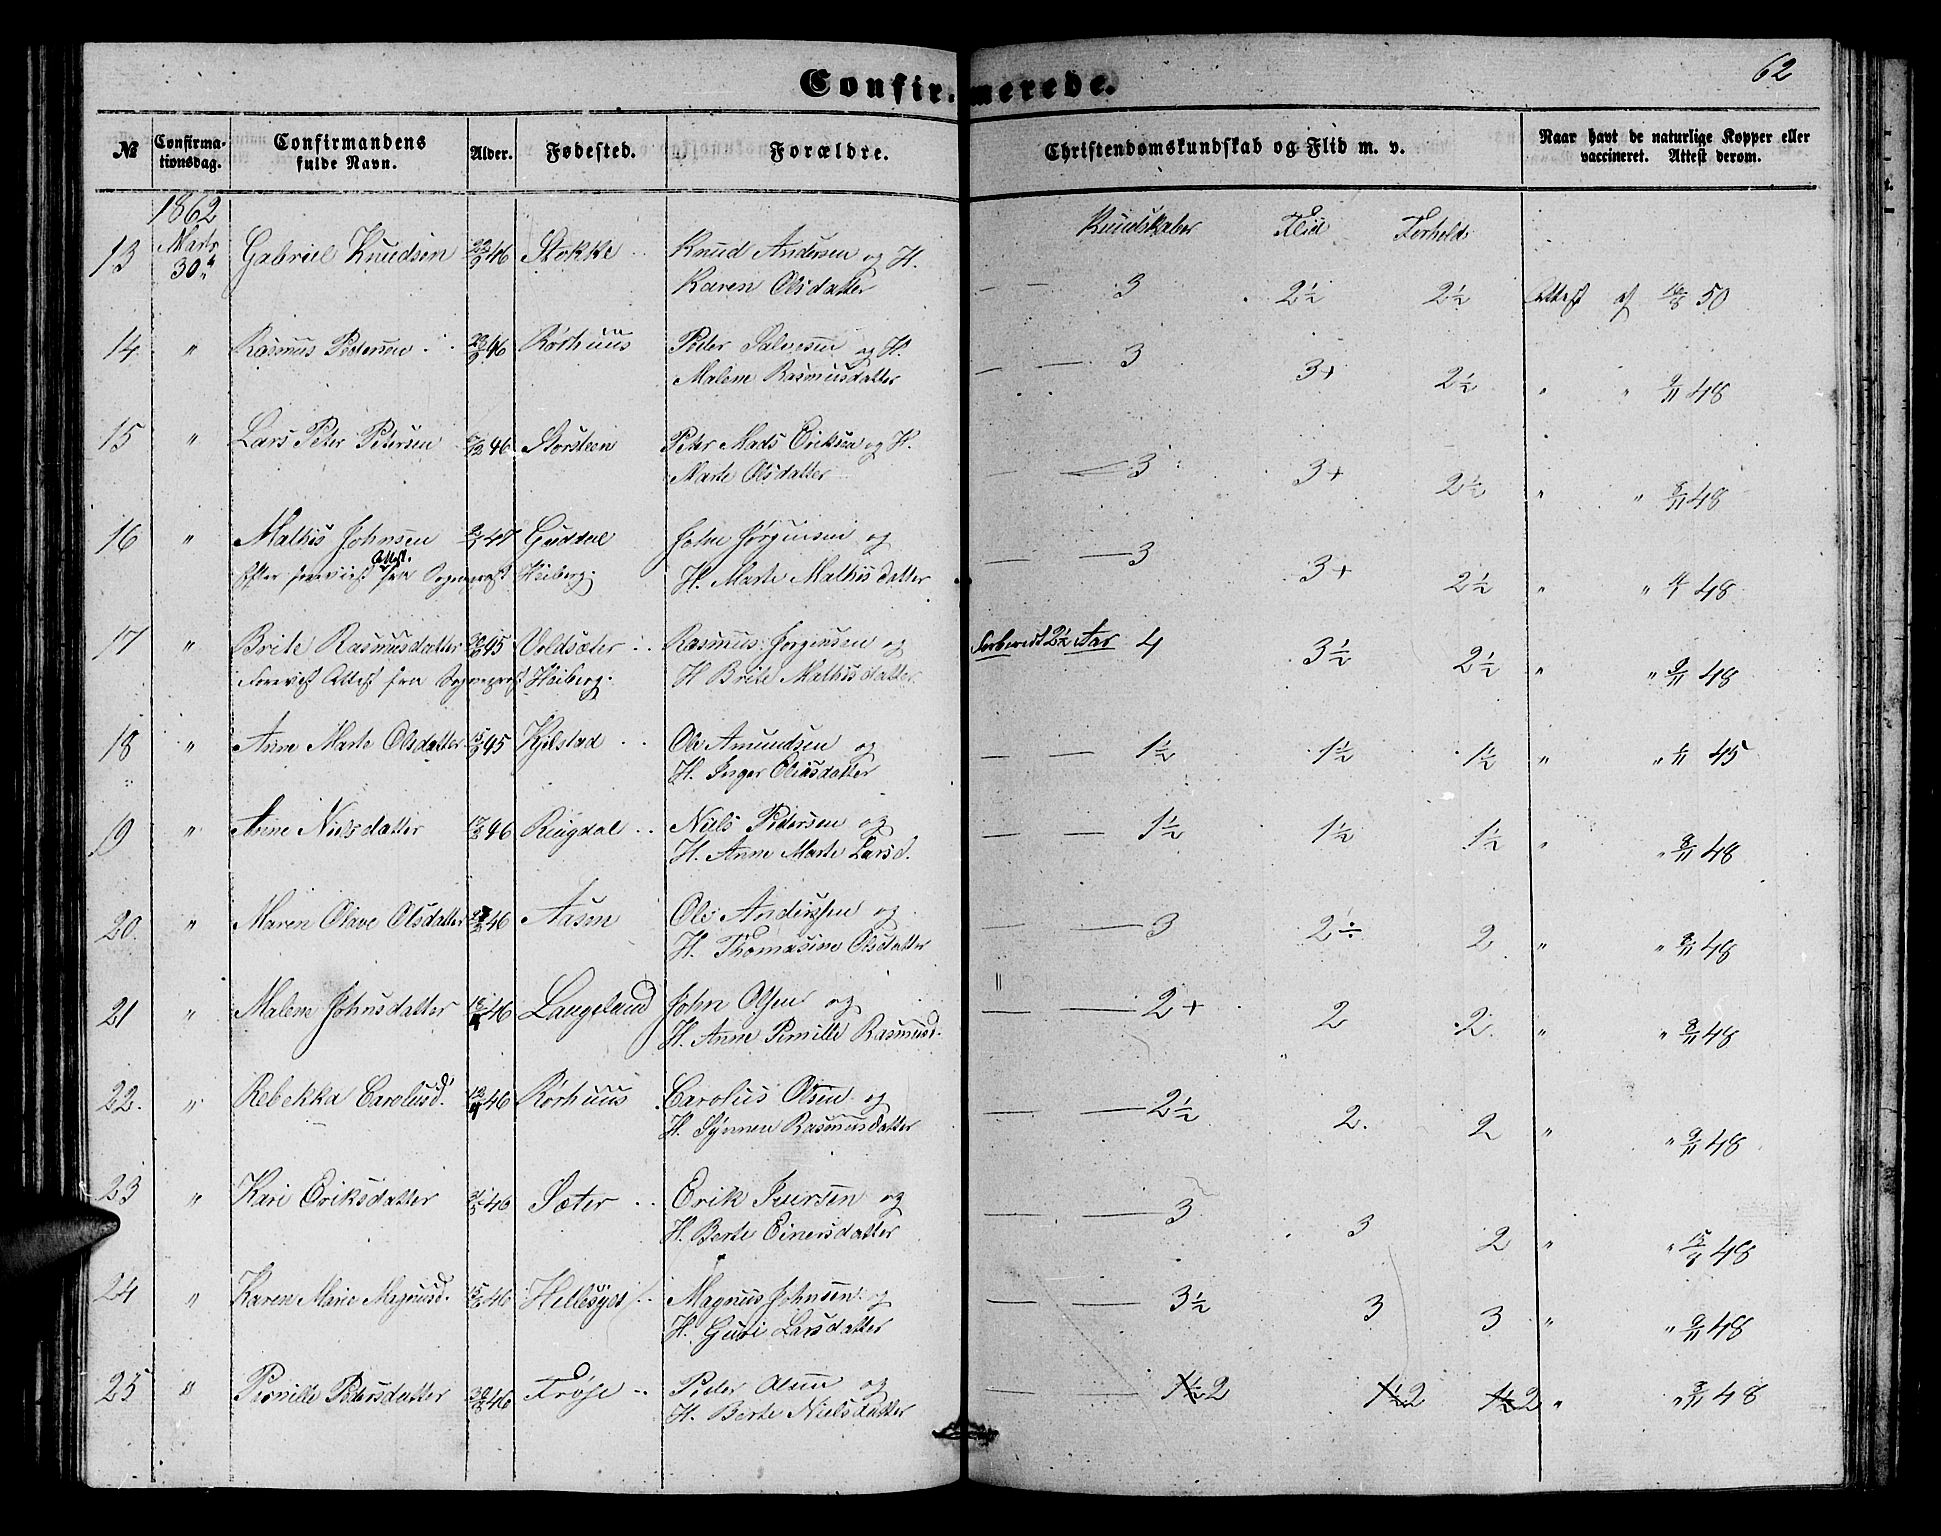 62
Confirmerede.
№ Confirmationsdag. Confirmandens fulde Navn. Alder. Fødested. Forældre. Christendomskundskab og Flid m. v. Naar havt de naturlige Kopper eller vaccineret. Attest derom.
1862 Kundskaber Flid Forhold
13 Marts 30 Gabriel Knudsen 46 Stokke Knud Andersen og H. Karen Olsdatter 3 2½ 2½ Attest af 50
14 " Rasmus Pedersen 46 Rørhuus Peder Salvesen og H. Malene Rasmusdatter 3 3+ 2½ " " 9/11 48
15 " Lars Peter Petersen 46 Storsteen Peter Mads Eriksen og H. Marte Olsdatter 3 3+ 2½ " " 48
16 " Mathis Johnsen 47 Guddal John Jørgensen og H. Marte Mathisdatter 3 3+ 2½ " " 48
Efter foreviist Attest fra Sognepræst Heiberg.
17 " Brite Rasmusdatter 45 Voldsæter Rasmus Jørgensen og H Brite Mathisdatter Forberedt 2½ Aar 4 3½ 2½ " " 9/11 48
Foreviist Attest fra Sognepræst Heiberg.
18 " Anne Marte Olsdatter 45 Kjilstad Ole Amundsen og H. Inger Eliasdatter 1½ 1½ 1½ " " 45
19 " Anne Nielsdatter 46 Ringdal Niels Pedersen og H. Anne Marte Larsd. 1½ 1½ 1½ " " 48
20. " Maren Olave Olsdatter 46 Aasen Ole Anderssen og H. Thomasine Olsdatter 3 2÷ 2 " " 48
21 " Malene Johnsdatter 46 Langeland John Olsen og H. Anne Pernille Rasmusd. 2+ 2 2 " " 48
22. " Rebekka Carolusd. 46 Rørhuus Carolus Olsen og H. Synnen Rasmusdatter 2½ 2 2 " " 9/11 48
23 " Kari Eriksdatter 46 Sæter Erik Iversen og H. Berte Einersdatter 3 3 2 " " 48
24 " Karen Marie Magnusd. 46 Hellesyes Magnus Johnsen og H. Guri Larsdatter 3½ 3 3 " " 9/11 48
25 " Pernille Petersdatter 46 Frøse Peder Olsen og H. Berte Nielsdatter 1½ 2 1½ 2 1½ 2 " " 48